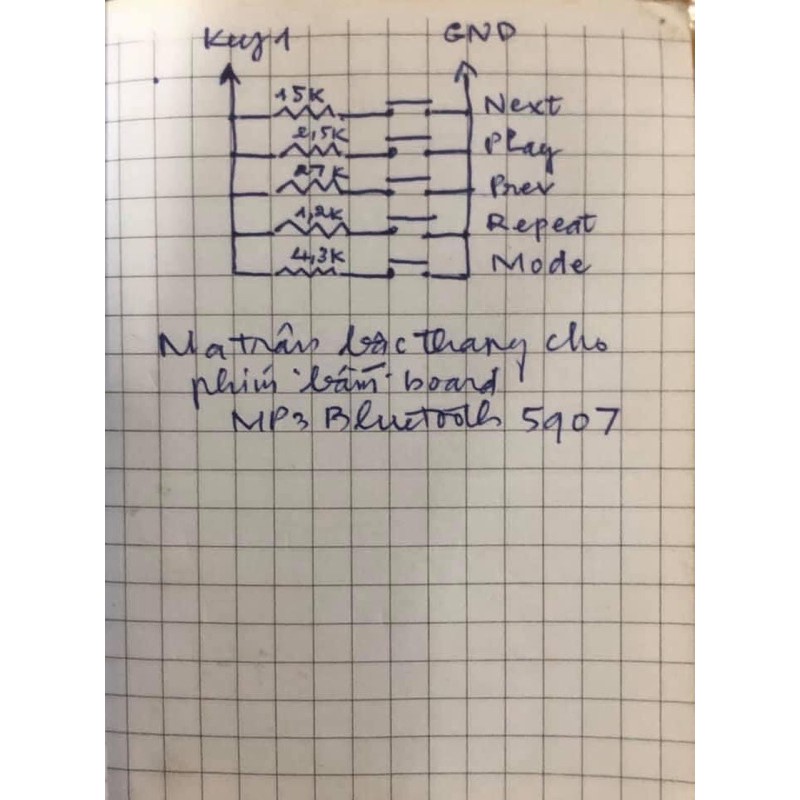 Key1 GND
15K Next
2,5K Play
27K Prev
1,2K Repeat
4,3K Mode
Ma trân bậc thang cho
phím bấm board
MP3 Bluetooth 5907